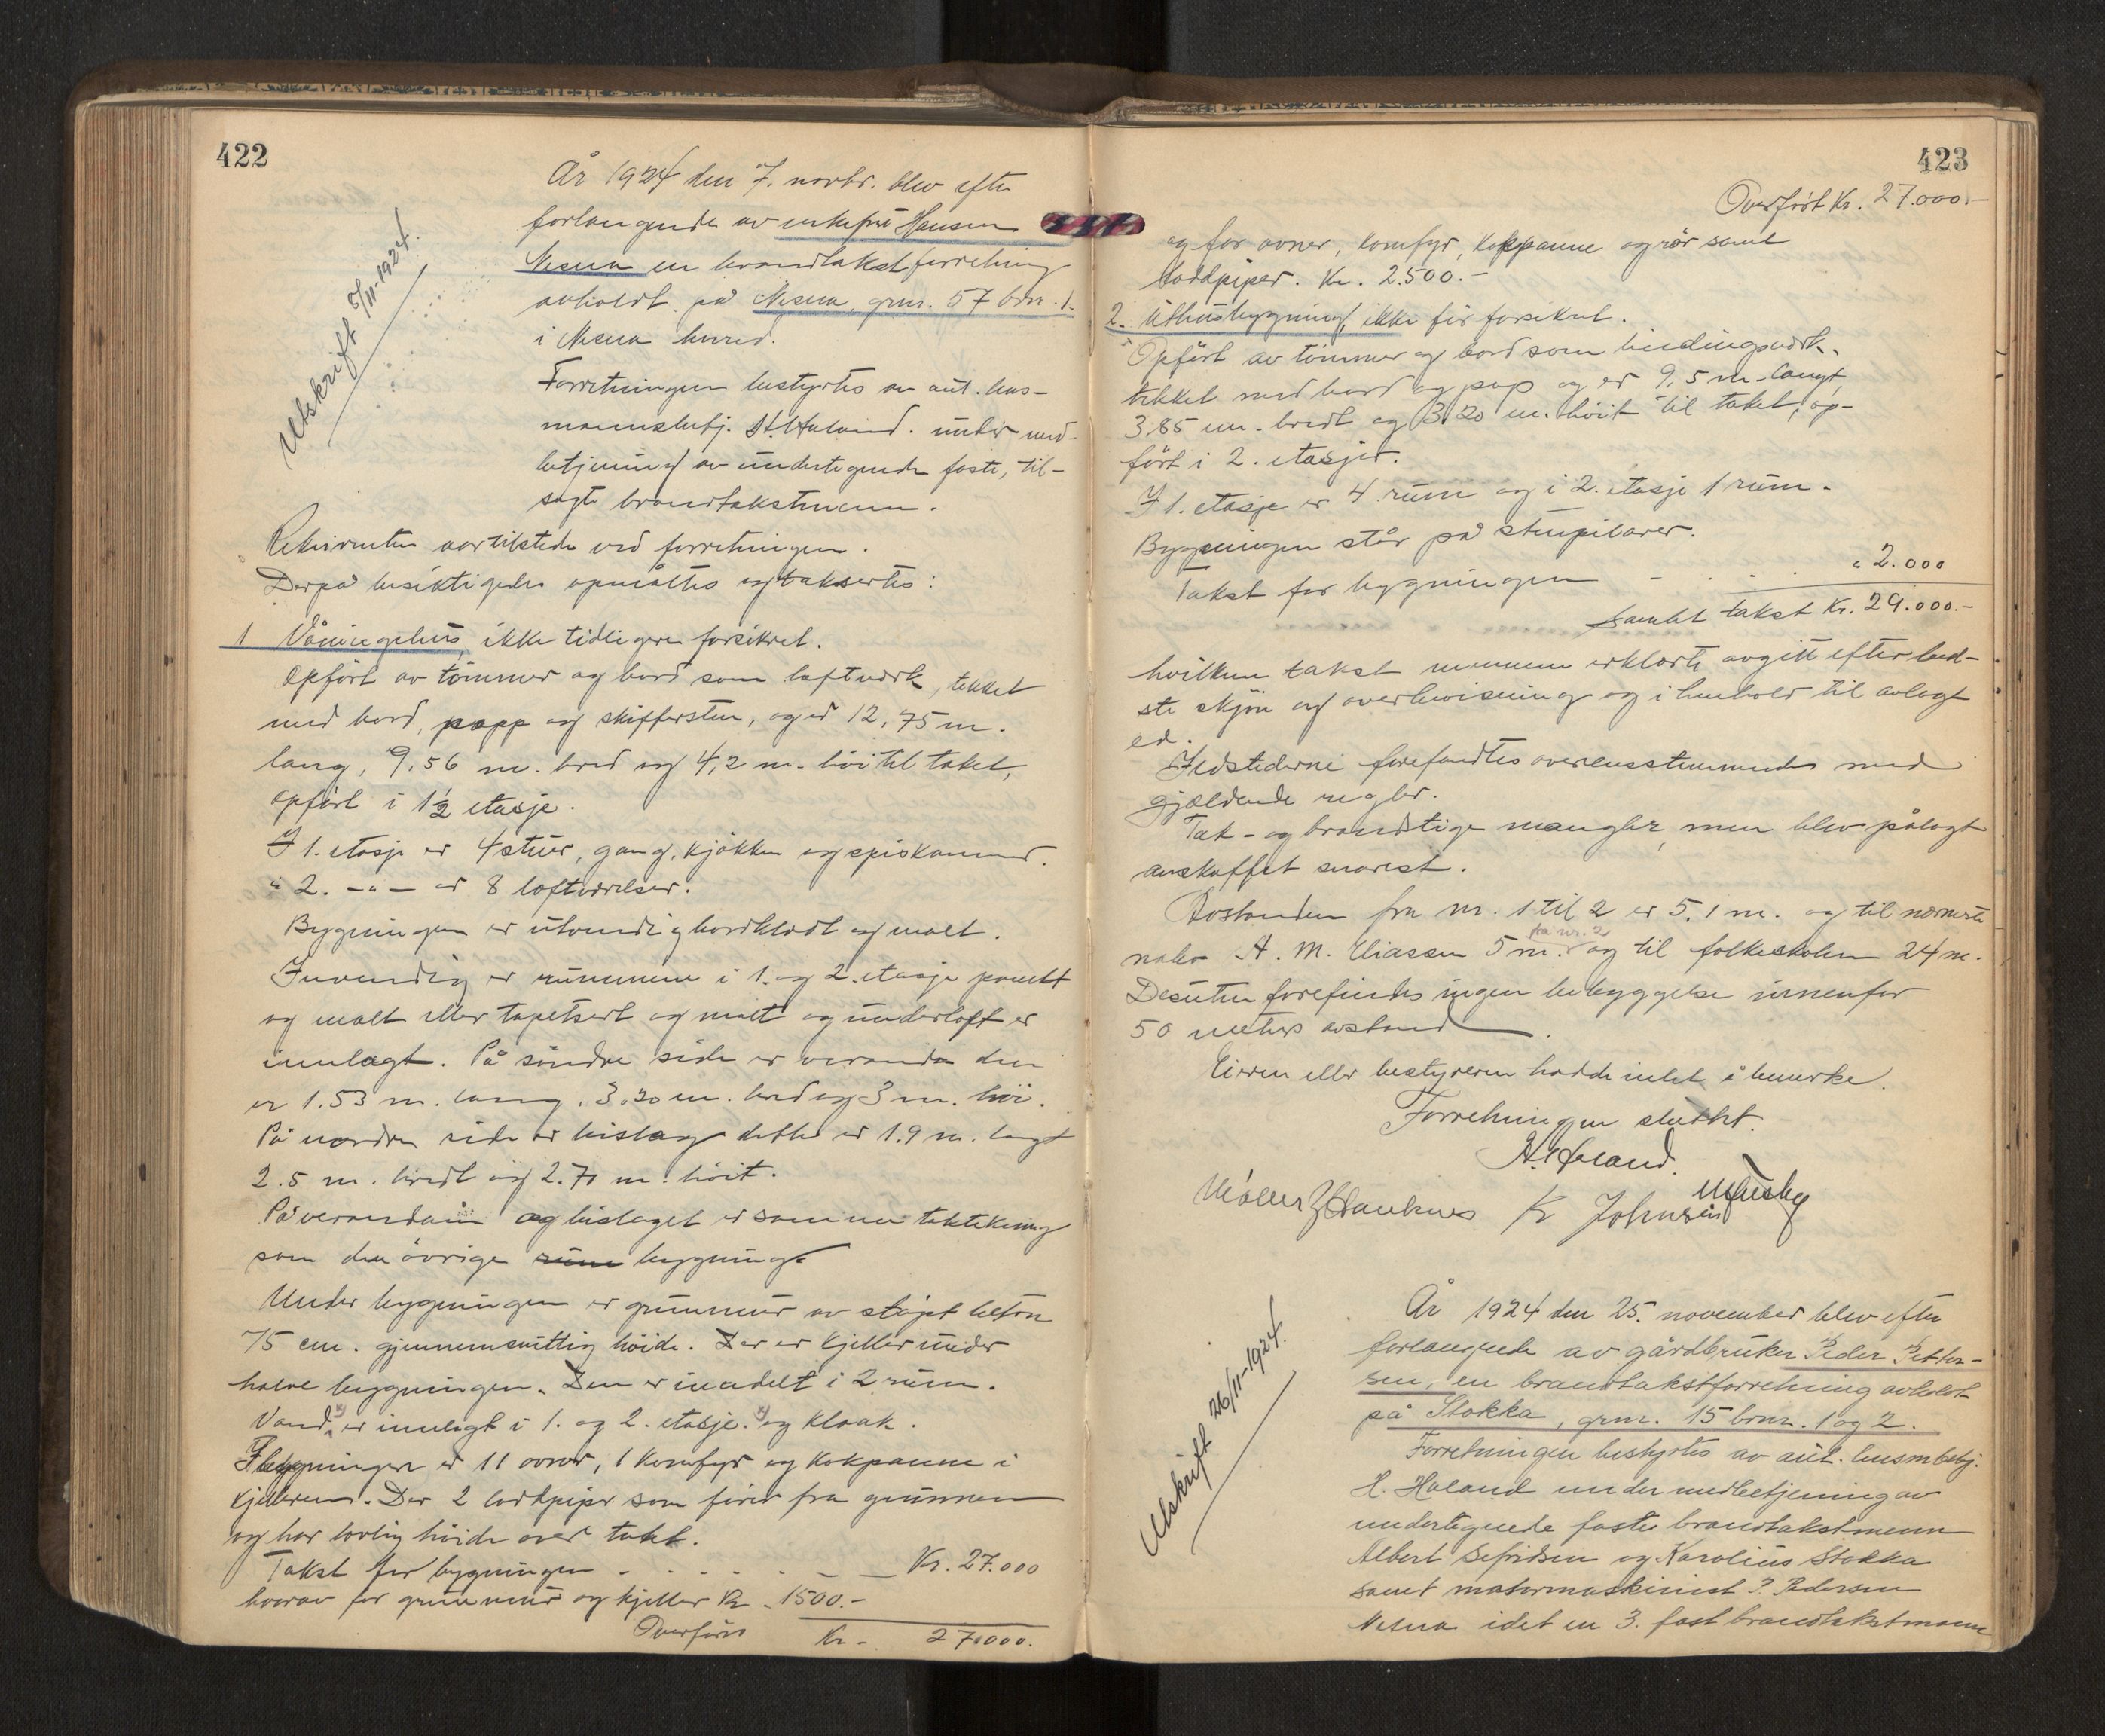 422
År 1924 den 7. novbr. blev efter
forlangende av enkefru Hansen
Nesna en brandtakstforretning
avholdt på Nesna, grnr. 57 brnr. 1.
i Nesna herred.
Utskrift 8/11-1924.
Forretningen bestyrtes av aut. lens-
mannsbetj. H. Haland. under med-
betjening av undertegnede faste, til-
sagte brandtakstmenn.
Rekvirenten var tilstede ved forretningen.
Derpå besiktigedes opmåltes og taksertes:
1 Våningshus, ikke tidligere forsikret.
Opført av tømmer og bord som laftverk, tekket
med bord, papp og skiffersten, og er 12,75 m.
lang, 9,56 m. bred og 4,2 m. høi til taket,
opført i 1½ etasje.
I 1. etasje er 4 stuer, gang, kjøkken og spiskammer.
" 2. -"- er 8 loftværelser.
Bygningen er utvendig bordklædt og malt.
Invendig er rummene i 1. og 2. etasje panelt
og malt eller tapetsert og malt og underloft er
innlagt. På søndre side er veranda den
er 1.53 m. lang, 3,20 m. bred og 3 m. høi.
På nordre side er bislag dette er 1.9 m. langt
2.5 m. bredt og 2.70 m. høit.
På verandaen og bislaget er samme taktekning
som den øvrige rum bygning.
Under bygningen er grunnmur av støpt beton
75 cm. gjennemsnittlig høide. Der er kjeller under
halve bygningen. Den er inndelt i 2 rum.
Vand er innlagt i 1. og 2. etasje. og kloak.
I bygningen er 11 ovner, 1 komfyr og kokpanne i
kjelleren. Der 2 loddpiper som fører fra grunnen
og har lovlig høide over taket.
Takst for bygningen - - - - - Kr. 27.000
hvorav for grunnmur og kjeller Kr. 1500.-
Overføres Kr. 27.000.
423
Overført Kr. 27.000.-
og for ovner, komfyr, kokpanne og rør samt
loddpiper. Kr. 2.500.-
2. Uthusbygning, ikke før forsikret.
Opført av tømmer og bord som bindingsverk,
tekket med bord og pap og er 9,5 m. langt,
3,85 m. bredt og 3.20 m. høit til taket, op-
ført i 2. etasjer.
I 1. etasje er 4 rum og i 2. etasje 1 rum.
Bygningen står på stenpilarer.
Takst for bygningen - . . . " 2.000
Samlet takst Kr. 29.000.-
hvilken takst mennene erklærte avgitt efter bed-
ste skjøn og overbevisning og i henhold til avlagt
ed.
Ildstederne forefandtes overensstemmende med
gjældende regler.
Tak- og brandstige mangler, men blev pålagt
anskaffet snarest.
Avstanden fra nr. 1 til 2 er 5,1 m. og til nærmeste
nabo A. M. Eliassen 5 m. fra nr. 2 og til folkeskolen 24 m.
Desuten forefindes ingen bebyggelse innenfor
50 meters avstand.
Eieren eller bestyreren hadde intet å bemerke.
Forretningen sluttet.
H. Haland.
Kr Johnsen
År 1924 den 25. november blev efter
forlangende av gårdbruker Peder Petter-
sen, en brandtakstforretning avholdt
på Stokka, grnr. 15 brnr. 1 og 2.
Utskrift 26/11-1924.
Forretningen bestyrtes av aut. lensm.betj.
H. Haland under medbetjening av
undertegnede faste brandtakstmenn
Albert Sefridsen og Karolius Stokka
samt motormaskinist P. Pedersen
Nesna idet en 3. fast brandtakstmann